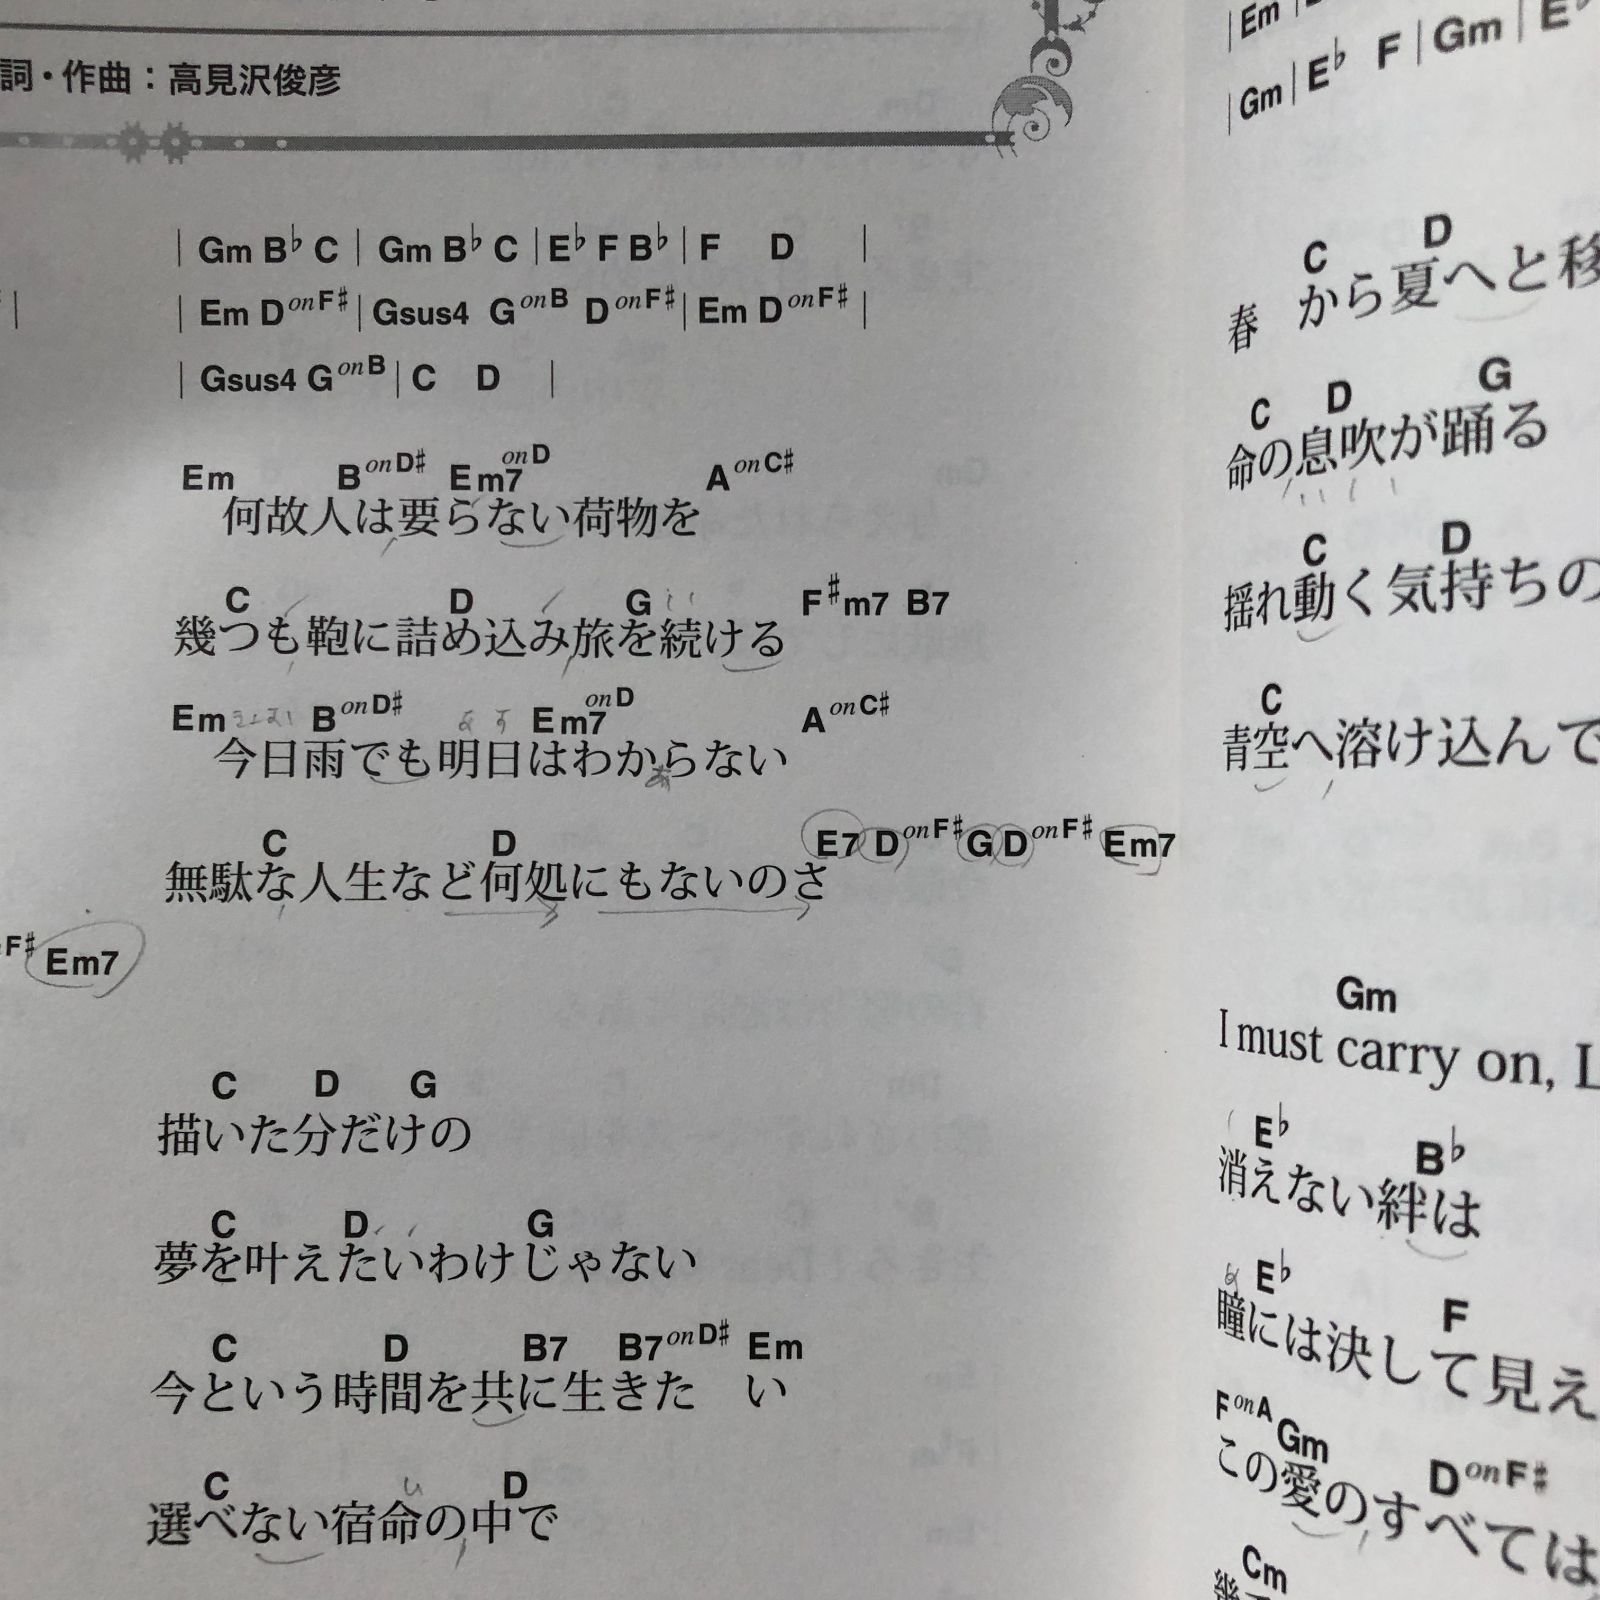 詞・作曲：高見沢俊彦
| Gm B♭ C | Gm B♭ C | E♭ F B♭ | F D |
| Em D onF♯ | Gsus4 G onB D onF♯ | Em D onF♯ |
| Gsus4 G onB | C D |
Em B onD♯ Em7 onD A onC♯
何故人は要らない荷物を
C D G F♯m7 B7
幾つも鞄に詰め込み旅を続ける
Em きょう B onD♯ あす Em7 onD A onC♯
今日雨でも明日はわからない
C D E7 D onF♯ G D onF♯ Em7
無駄な人生など何処にもないのさ
F♯ Em7
C D G
描いた分だけの
C D G
夢を叶えたいわけじゃない
C D B7 B7 onD♯ Em
今という時間を共に生きた い
C D
選べない宿命の中で
| Em |
| Gm | E♭ F | Gm | E♭
C D
春 から夏へと移
C D G
命の息吹が踊る
C D
揺れ動く気持ちの
C
青空へ溶け込んで
Gm
I must carry on, L
E♭ B♭
消えない絆は
E♭ F
瞳には決して見え
F onA Gm D onF♯
この愛のすべては
Cm
幾